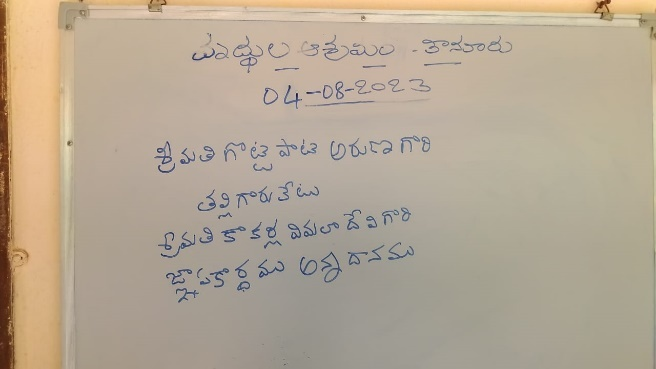 వృద్ధుల ఆశ్రమం - కానూరు
04-08-2023
శ్రీమతి గొట్టిపాటి అరుణ గారి
తల్లిగారు లేటు
శ్రీమతి కాకర్ల విమలాదేవి గారి
జ్ఞాపకార్థము అన్నదానము